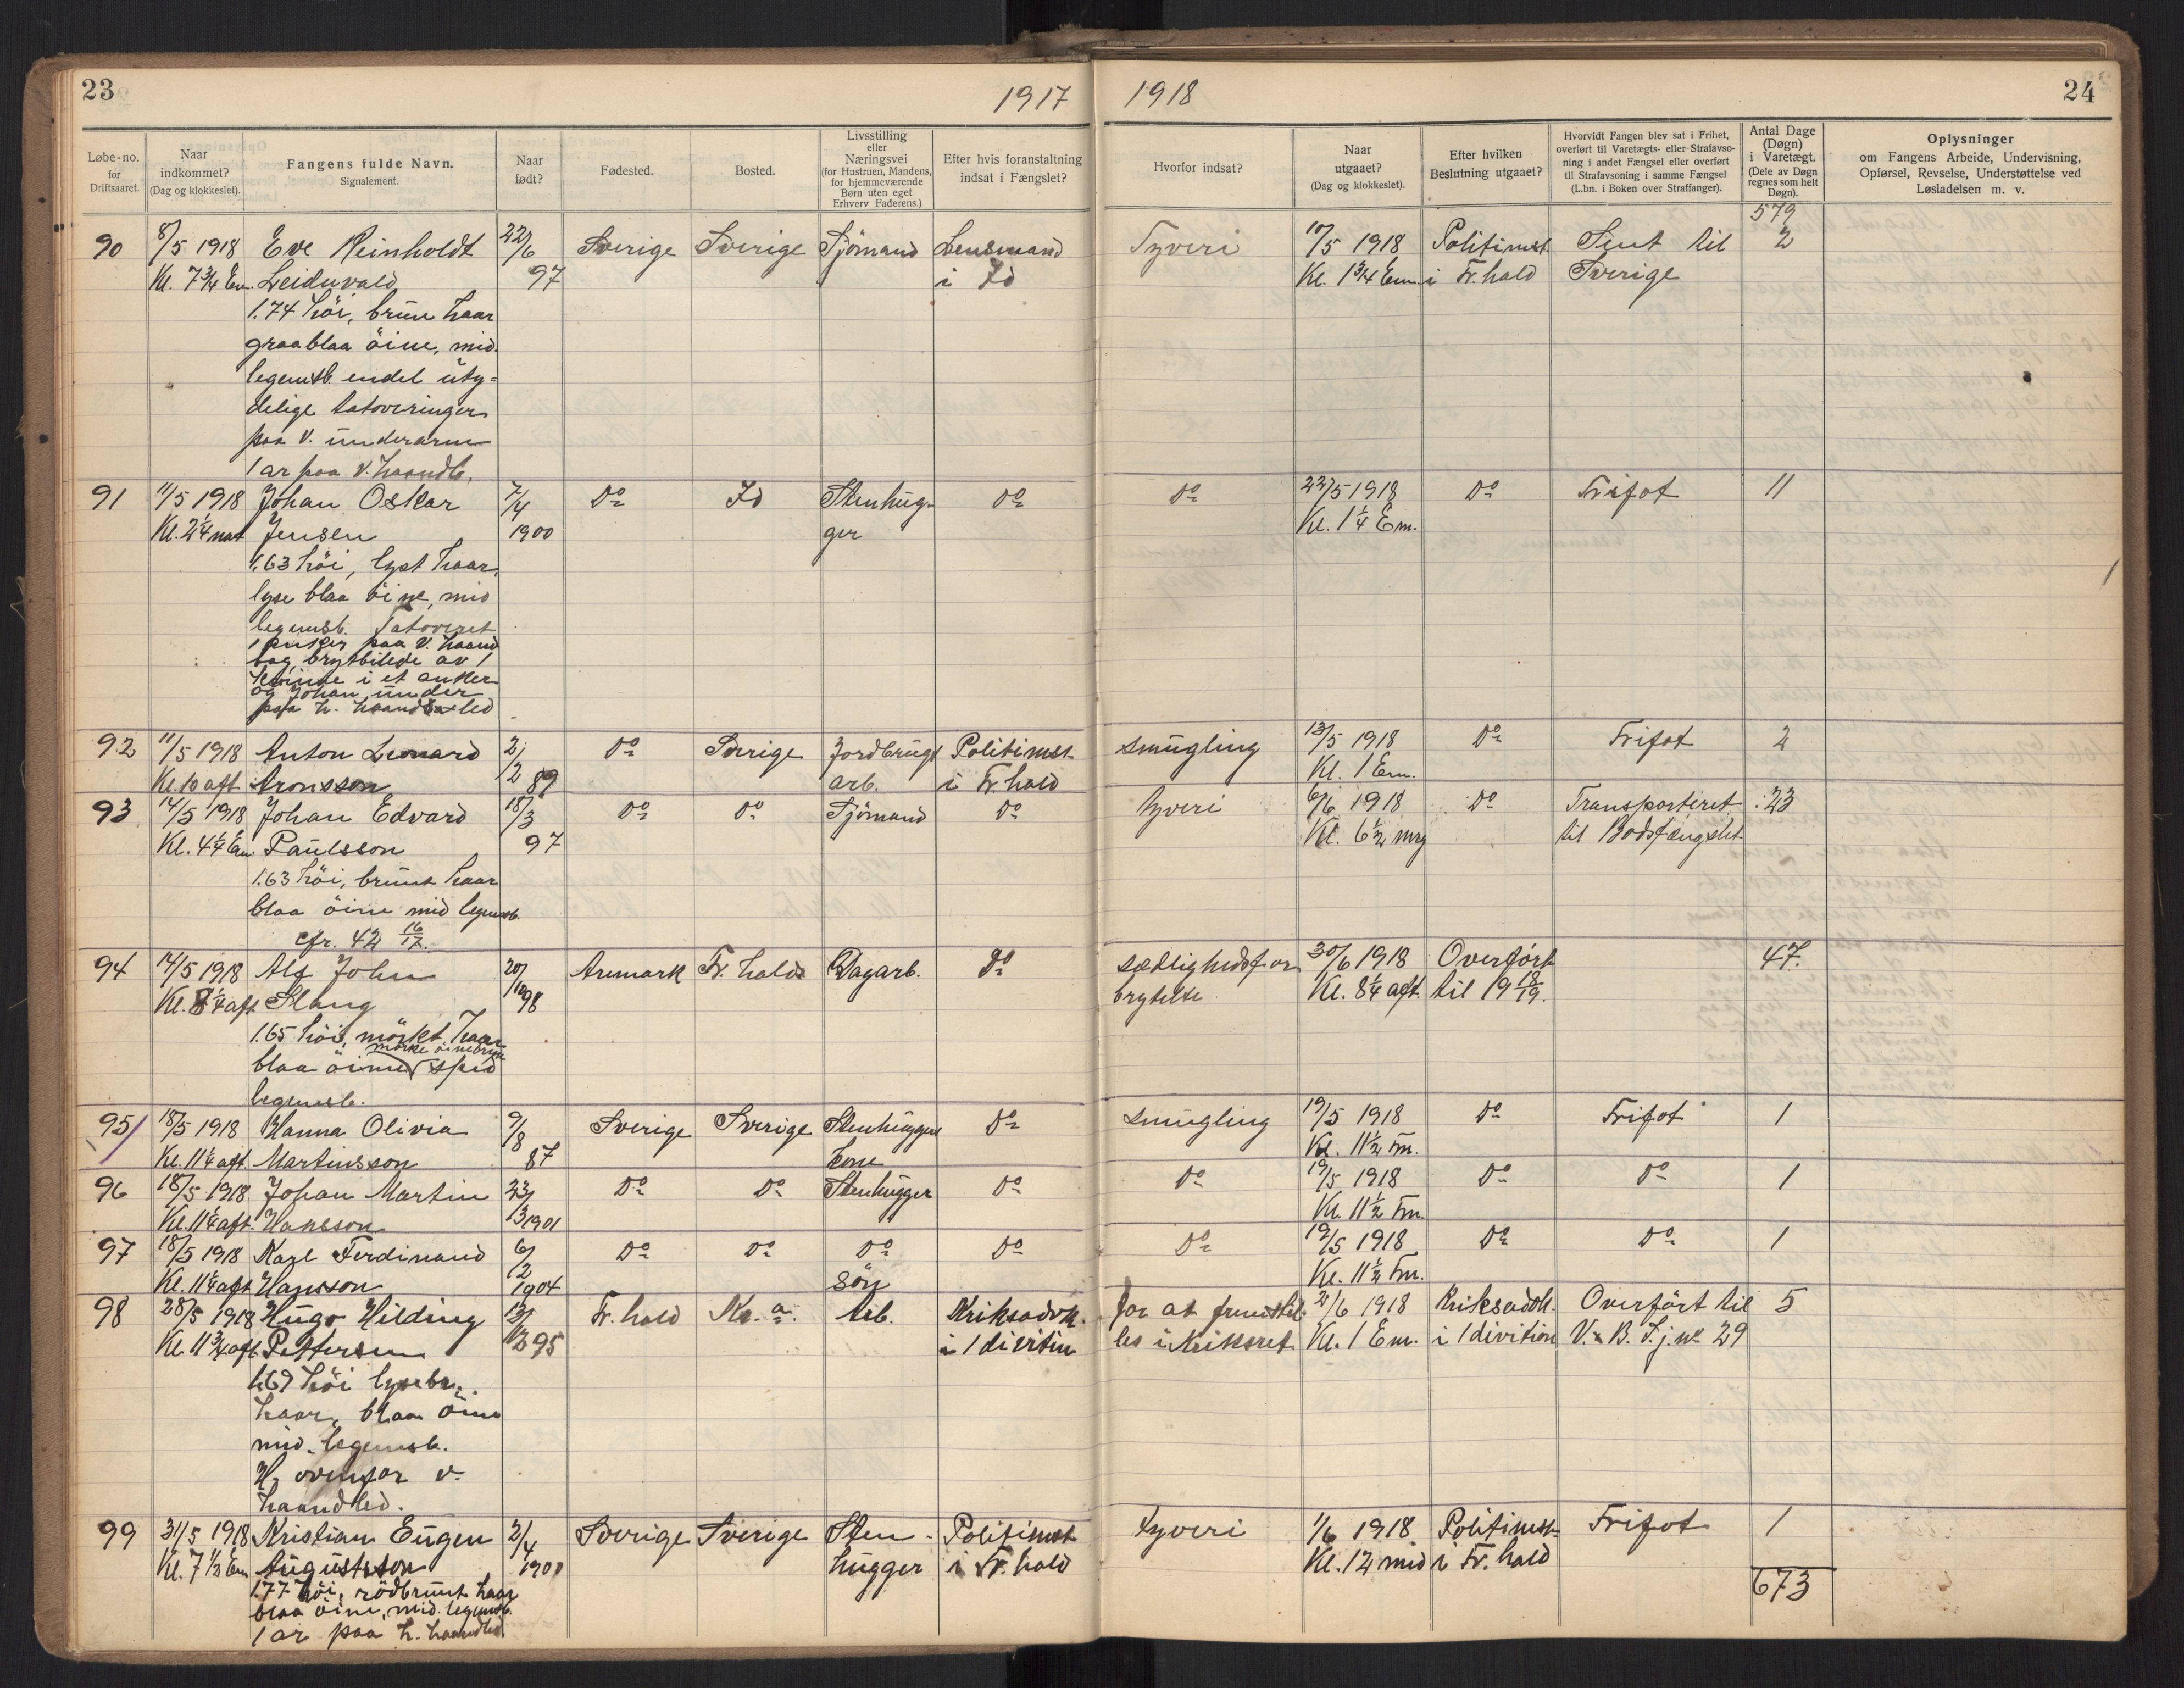 23
1917
1918
24
Løbe-no. for Driftsaaret.
Naar indkommet? (Dag og klokkeslet).
Fangens fulde Navn. Signalement.
Naar født?
Fødested.
Bosted.
Livsstilling eller Næringsvei (for Hustruen, Mandens, for hjemmeværende Børn uten eget Erhverv Faderens.)
Efter hvis foranstaltning indsat i Fængslet?
Hvorfor indsat?
Naar utgaaet? (Dag og klokkeslet).
Efter hvilken Beslutning utgaaet?
Hvorvidt Fangen blev sat i Frihet, overført til Varetægts- eller Strafavsoning i andet Fængsel eller overført til Strafavsoning i samme Fængsel (L.bn. i Boken over Straffanger).
Antal Dage (Døgn) i Varetægt. (Dele av Døgn regnes som helt Døgn).
Oplysninger om Fangens Arbeide, Undervisning, Opførsel, Revselse, Understøttelse ved Løsladelsen m. v.
579
90 8/5 1918 Eve Reinholdt 22/6 Sverige Sverige Sjömand Lensmand Tyveri 10/5 1918 Politimst. Sent til 2
Kl. 7 3/4 Em. Leiduvald 97 i Id Kl. 1 3/4 Em. i Fr. hald Sverige
1.74 höi, brune haar
graablaa öine, mid.
legemsb. endel uty-
delige tatoveringer
paa v. underarm
1 ar paa v. haandb.
91 11/5 1918 Johan Oskar 7/4 Do Id Stenhug- Do Do 22/5 1918 Do Frifot 11
Kl. 2 1/4 nat Jensen 1900 ger Kl. 1 1/4 Em.
1.63 höi, lyst haar,
lyse blaa öine, mid
legemsb. Tatoveret
1 anker paa v. haand
bag, brystbilede av 1
kvinde i et anker
og Johan under
paa h. haandled
92 11/5 1918 Anton Leonard 2/12 Do Sverige Jordbrugs Politimst. smugling 13/5 1918 Do Frifot 2
Kl. 10 aft. Aronsson 89 arb. i Fr. hald Kl. 1 Em.
93 14/5 1918 Johan Edvard 18/3 Do Do Sjömand Do Tyveri 6/6 1918 Do Transporteret 23
Kl. 4 1/4 Em Paulsson 97 Kl. 6 1/2 mrg til Bodsfængslet
1.63 höi, brunt haar
blaa öine mid legemsb.
cfr. 42 16/17.
94 14/5 1918 Alf John 20/10 Aremark Fr. hald Dagarb. Do sædlighedsfor 30/6 1918 Overfört 47.
Kl. 8 1/4 aft Stang 98 brytelse Kl. 8 1/4 aft. til 19 18/19.
1.65 höi, mörkt haar
mörke öinebryn
blaa öine spid
legemsb.
95 18/5 1918 Hanna Olivia 9/8 Sverige Sverige Stenhuggers Do smugling 19/5 1918 Do Frifot 1
Kl. 11 1/4 aft. Martinsson 87 kone Kl. 11 1/2 Fm.
96 18/5 1918 Johan Martin 23/3 Do Do Stenhugger Do Do 19/5 1918 Do Do 1
Kl. 11 1/4 aft. Hansson 1901 Kl. 11 1/2 Fm.
97 18/5 1918 Karl Ferdinand 6/2 Do Do Do Do Do 19/5 1918 Do Do 1
Kl. 11 1/4 aft Hansson 1904 sön Kl. 11 1/2 Fm.
98 28/5 1918 Hugo Hilding 13/12 Fr. hald Kr.a. Arb. Kriksadvk. for at fremstil 2/6 1918 Kriksadvk. Overfört til 5
Kl. 11 3/4 aft. Pettersen 95 i 1 divisin les i Kriksret Kl. 1 Em. i 1 divition V. B. Lj. no 29
1.69 höi lysebr.
haar, blaa öine
mid. legemsb.
H. ovenfor v.
haandled.
99 31/5 1918 Kristian Eugen 2/4 Sverige Sverige Sten- Politimst. Tyveri 1/6 1918 Politimst. Frifot 1
Kl. 7 1/2 Em Augustsson 1900 hugger i Fr. hald Kl. 12 mid i Fr. hald
1.77 höi, rödbrunt haar
blaa öine, mid. legemsb.
1 ar paa h. haandled.
673